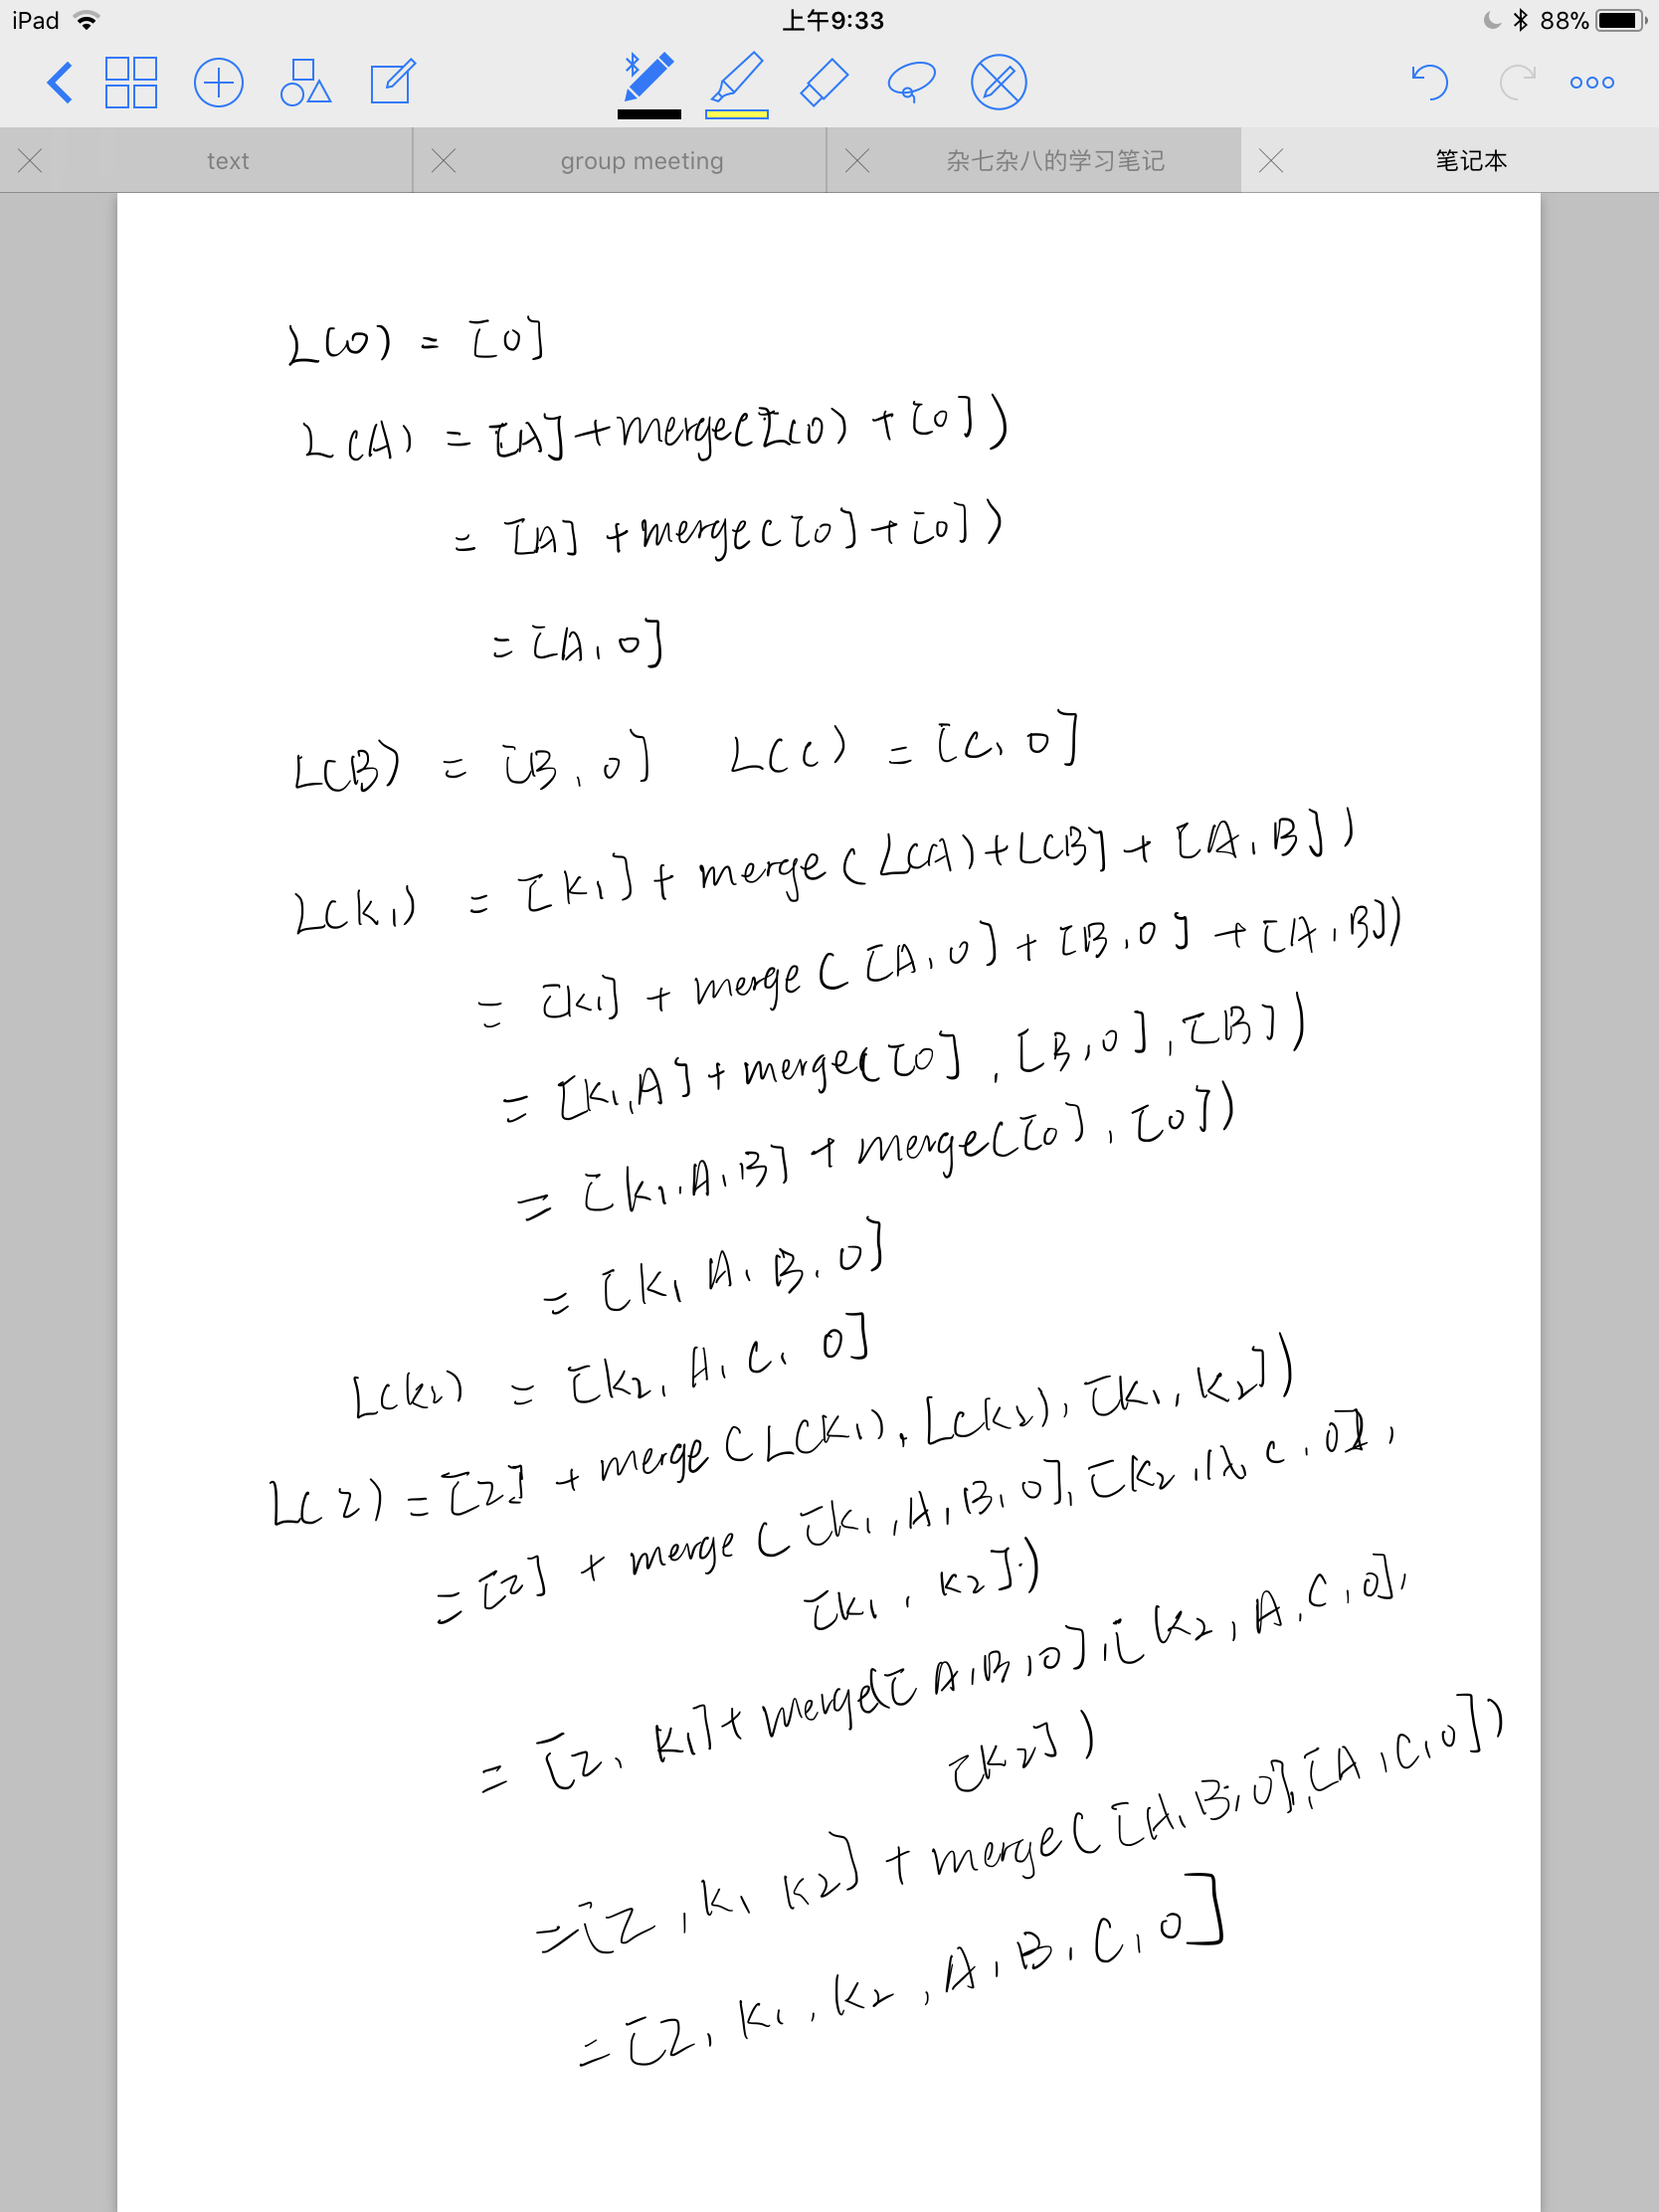 iPad 上午9:33 88%
text group meeting 杂七杂八的学习笔记 笔记本
L(O) = [O]
L(A) = [A]+merge(L(O) + [O])
= [A] + merge([O]+[O])
= [A, O]
L(B) = [B, O] L(C) = [C, O]
L(K1) = [K1] + merge (L(A)+L(B] + [A, B])
= [K1] + merge ([A, O] + [B, O] + [A, B])
= [K1, A] + merge([O], [B, O], [B])
= [K1, A, B] + merge([O], [O])
= [K1 A, B, O]
L(K2) = [K2, A, C, O]
L(Z) = [Z] + merge (L(K1), L(K2), [K1, K2])
= [Z] + merge ([K1, A, B, O], [K2, A, C, O],
[K1, K2])
= [Z, K1] + merge([A, B, O], [K2, A, C, O],
[K2])
= [Z, K1 K2] + merge([A, B, O], [A, C, O])
= [Z, K1, K2, A, B, C, O]